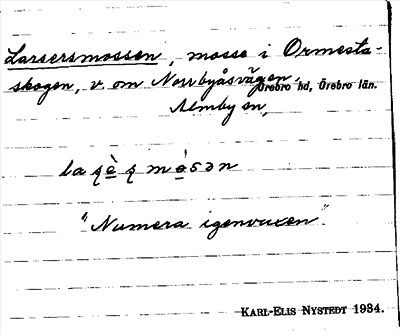 Larsersmossen, mosse i Ormesta-
skogen, v. om Norrbyåsvägen.
Örebro hd, Örebro län.
Almby sn,
"Numera igenvuxen".
KARL-ELIS NYSTEDT 1934.